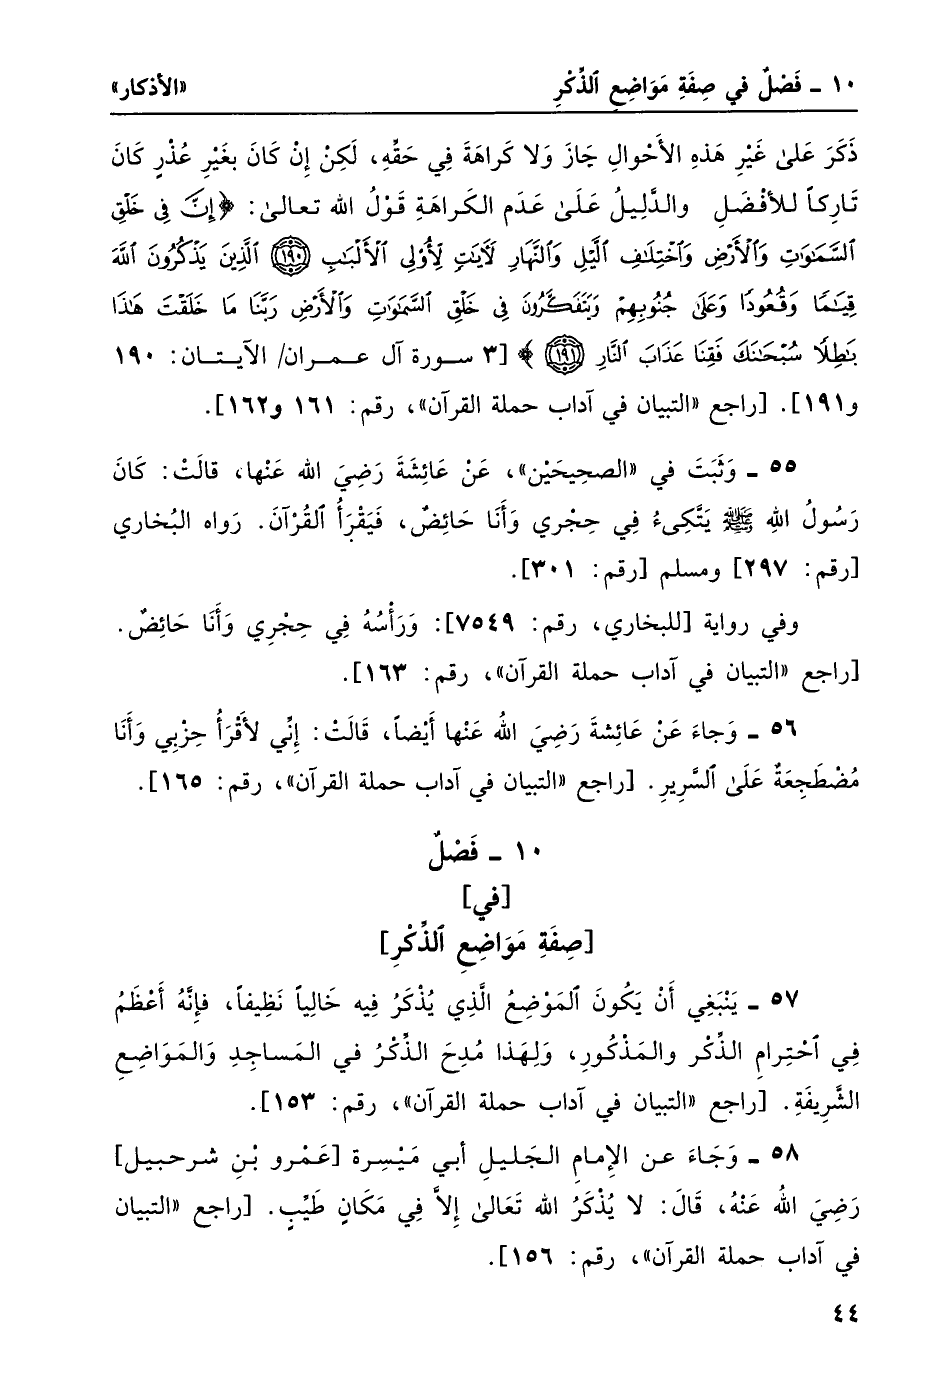 ١٠ ـ فَصْلٌ في صِفَةِ مَوَاضِعِ ٱلذِّكْرِ «الأذكار»
ذَكَرَ عَلىٰ غَيْرِ هَذهِ الأَحْوالِ جَازَ وَلا كَراهَةَ فِي حَقِّهِ، لَكِنْ إِنْ كَانَ بغَيْرِ عُذْرٍ كَانَ
تَارِكاً للأفْضَلِ والدَّلِيلُ عَلَىٰ عَدَمِ الكَراهَةِ قَوْلُ الله تعالىٰ: ﴿ إِنَّ فِي خَلْقِ
ٱلسَّمَٰوَٰتِ وَٱلْأَرْضِ وَٱخْتِلَٰفِ ٱلَّيْلِ وَٱلنَّهَارِ لَأٓيَٰتٍ لِّأُو۟لِي ٱلْأَلْبَٰبِ ۝١٩٠ ٱلَّذِينَ يَذْكُرُونَ ٱللَّهَ
قِيَٰمًا وَقُعُودًا وَعَلَىٰ جُنُوبِهِمْ وَيَتَفَكَّرُونَ فِي خَلْقِ ٱلسَّمَٰوَٰتِ وَٱلْأَرْضِ رَبَّنَا مَا خَلَقْتَ هَٰذَا
بَٰطِلًا سُبْحَٰنَكَ فَقِنَا عَذَابَ ٱلنَّارِ ۝١٩١ ﴾ [٣ سورة آل عمران/ الآيتان: ١٩٠
و١٩١]. [راجع «التبيان في آداب حملة القرآن»، رقم: ١٦١ و١٦٢].
٥٥ ـ وَثَبَتَ في «الصحيحَيْن»، عَنْ عَائِشَةَ رَضِيَ الله عَنْها، قالَتْ: كَانَ
رَسُولُ اللهِ ﷺ يَتَّكِىءُ فِي حِجْري وَأَنَا حَائِضٌ، فَيَقْرَأُ ٱلقُرْآنَ. رَواه البُخاري
[رقم: ٢٩٧] ومسلم [رقم: ٣٠١].
وفي رواية [للبخاري، رقم: ٧٥٤٩]: وَرَأْسُهُ فِي حِجْرِي وَأَنَا حَائِضٌ.
[راجع «التبيان في آداب حملة القرآن»، رقم: ١٦٣].
٥٦ ـ وَجاءَ عَنْ عَائِشةَ رَضِيَ اللهُ عَنْها أَيْضاً، قَالَتْ: إِنِّي لأقْرَأُ حِزْبِي وَأَنَا
مُضْطَجِعَةٌ عَلَىٰ ٱلسَّرِيرِ. [راجع «التبيان في آداب حملة القرآن»، رقم: ١٦٥].
١٠ ـ فَصْلٌ
[في]
[صِفَةِ مَوَاضِعِ ٱلذِّكْرِ]
٥٧ ـ يَنْبَغِي أَنْ يَكُونَ ٱلمَوْضِعُ الَّذِي يُذْكَرُ فِيه خَالِياً نَظِيفاً، فإنَّهُ أَعْظَمُ
فِي ٱحْتِرامِ الذِّكْر والمَذْكُورِ، وَلِهَذا مُدِحَ الذِّكْرُ في المَساجِدِ وَالمَوَاضِعِ
الشَّرِيفَةِ. [راجع «التبيان في آداب حملة القرآن»، رقم: ١٥٣].
٥٨ ـ وَجَاءَ عن الإِمامِ الجَليلِ أبي مَيْسِرة [عَمْرو بْنِ شرحبيل]
رَضِيَ اللهُ عَنْهُ، قَالَ: لا يُذْكَرُ الله تَعَالىٰ إِلاَّ فِي مَكَانٍ طَيِّبٍ. [راجع «التبيان
في آداب حملة القرآن»، رقم: ١٥٦].
٤٤